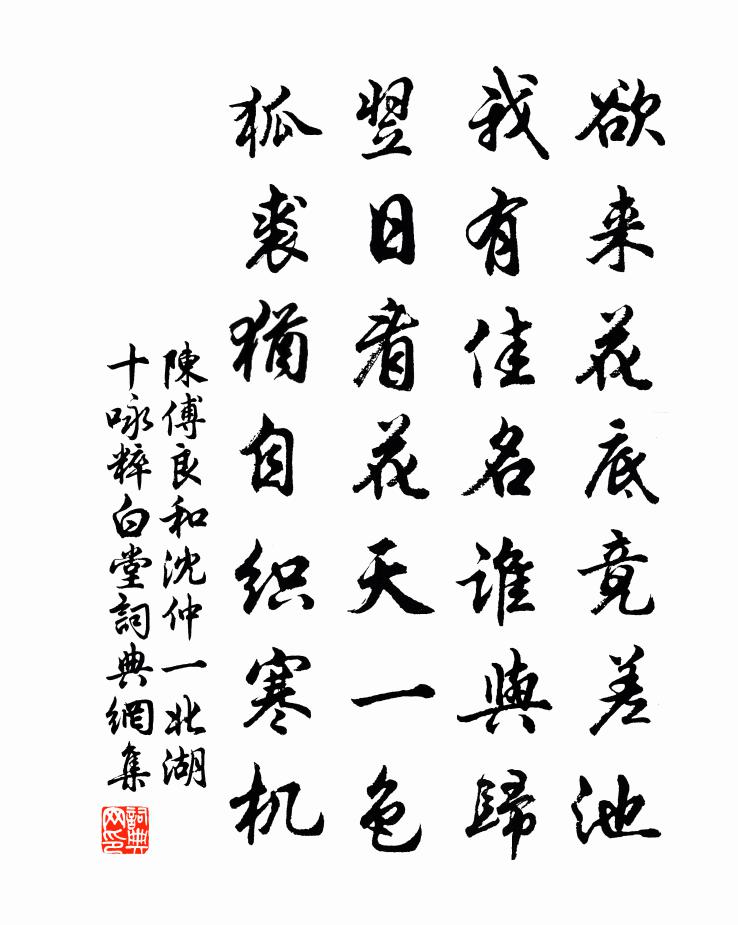 欲来花底竟差池
我有佳名谁與歸
翌日看花天一色
狐裘猶自织寒机
陳傅良和沈仲一北湖
十咏粹白堂詞典網集
詞典网印